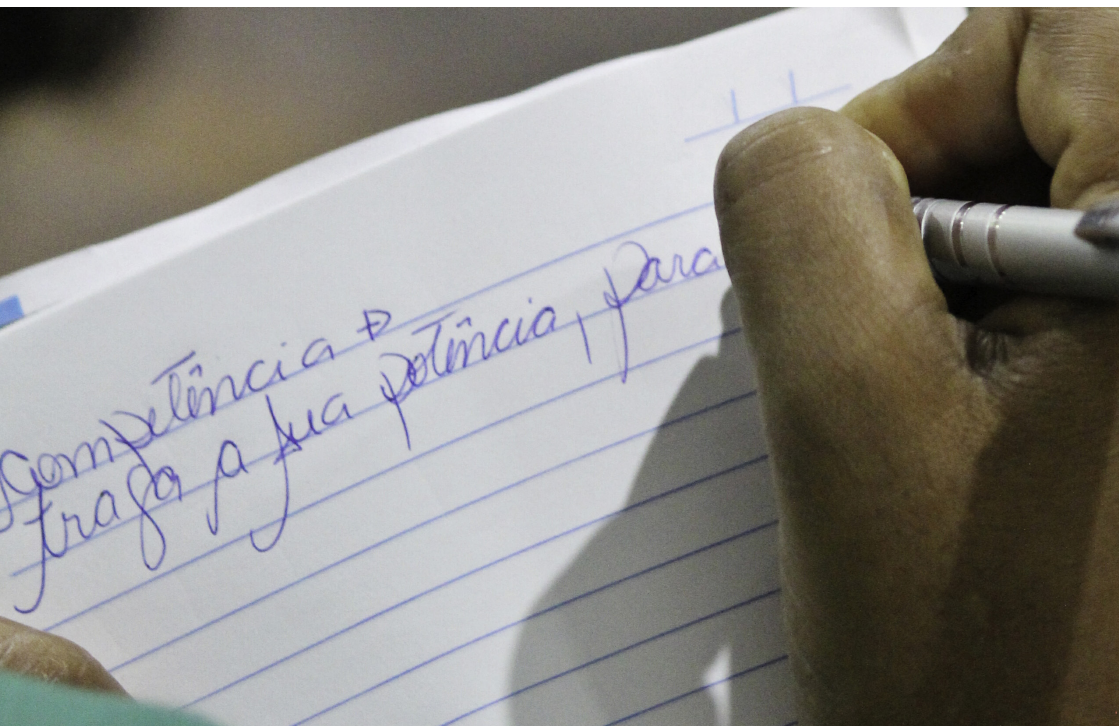 Competência →
traga a sua potência, para